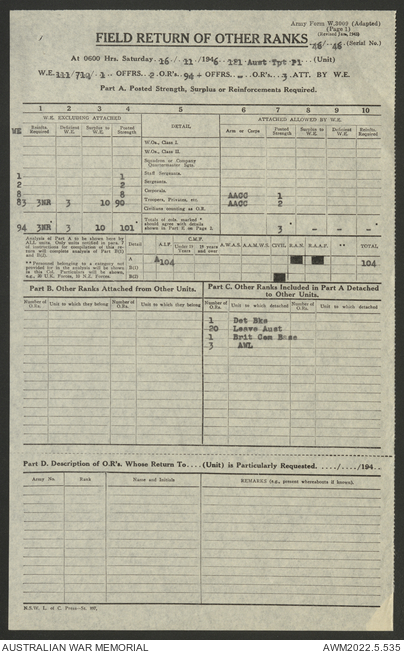 Army Form W.3009 (Adapted)
(Page 1)
(Revised Jan., 1945)
FIELD RETURN OF OTHER RANKS 46/46 (Serial No.)
At 0600 Hrs. Saturday 16/11/1946 121 Aust Tpt Pl (Unit)
W.E. 111/712/1 OFFRS. 2 O.R's. 94 + OFFRS - O.R's. 3 ATT. BY W.E.
Part A. Posted Strength, Surplus or Reinforcements Required.
1 2 3 4 5 6 7 8 9 10
W.E. EXCLUDING ATTACHED ATTACHED ALLOWED BY W.E.
WE Reinfts. Required Deficient W.E. Surplus to W.E. Posted Strength DETAIL Arms or Corps Posted Strength Surplus to W.E. Deficient W.E. Reinfts. Required
W.Os., Class I.
W.Os., Class II.
Squadron or Company Quartermaster Sgts.
1 1 Staff Sergeants.
2 2 Sergeants.
8 8 Corporals. AACC 1
83 3NR 3 10 90 Troopers, Privates, etc. AACC 2
Civilians counting as O.R.
94 3NR 3 10 101 Totals of cols. marked * should agree with details shown in Part E. on Page 2. 3 -
Analysis of Part A to be shown here by ALL units. Detail A.I.F. C.M.F. Under 19 Years 19 years and over A.W.A.S. A.A.M.W.S. CIVIL. R.A.N. R.A.A.F. ** TOTAL
A 104 104
B(i)
B(ii)
** Personnel belonging to a category not provided for in the analysis will be shown in this Col. Particulars will be shown, e.g., 30 U.K. Forces, 10 N.Z. Forces.
Part B. Other Ranks Attached from Other Units. Part C. Other Ranks Included in Part A Detached to Other Units.
Number of O.Rs. Unit to which they belong Number of O.Rs. Unit to which they belong Number of O.Rs. Unit to which detached Number of O.Rs. Unit to which detached
1 Det Bks
20 Leave Aust
1 Brit Com Base
3 AWL
Part D. Description of O.R's. Whose Return To....(Unit) is Particularly Requested. ..../..../194..
Army No. Rank Name and Initials REMARKS (e.g., present whereabouts if known)
AUSTRALIAN WAR MEMORIAL AWM2022.5.535